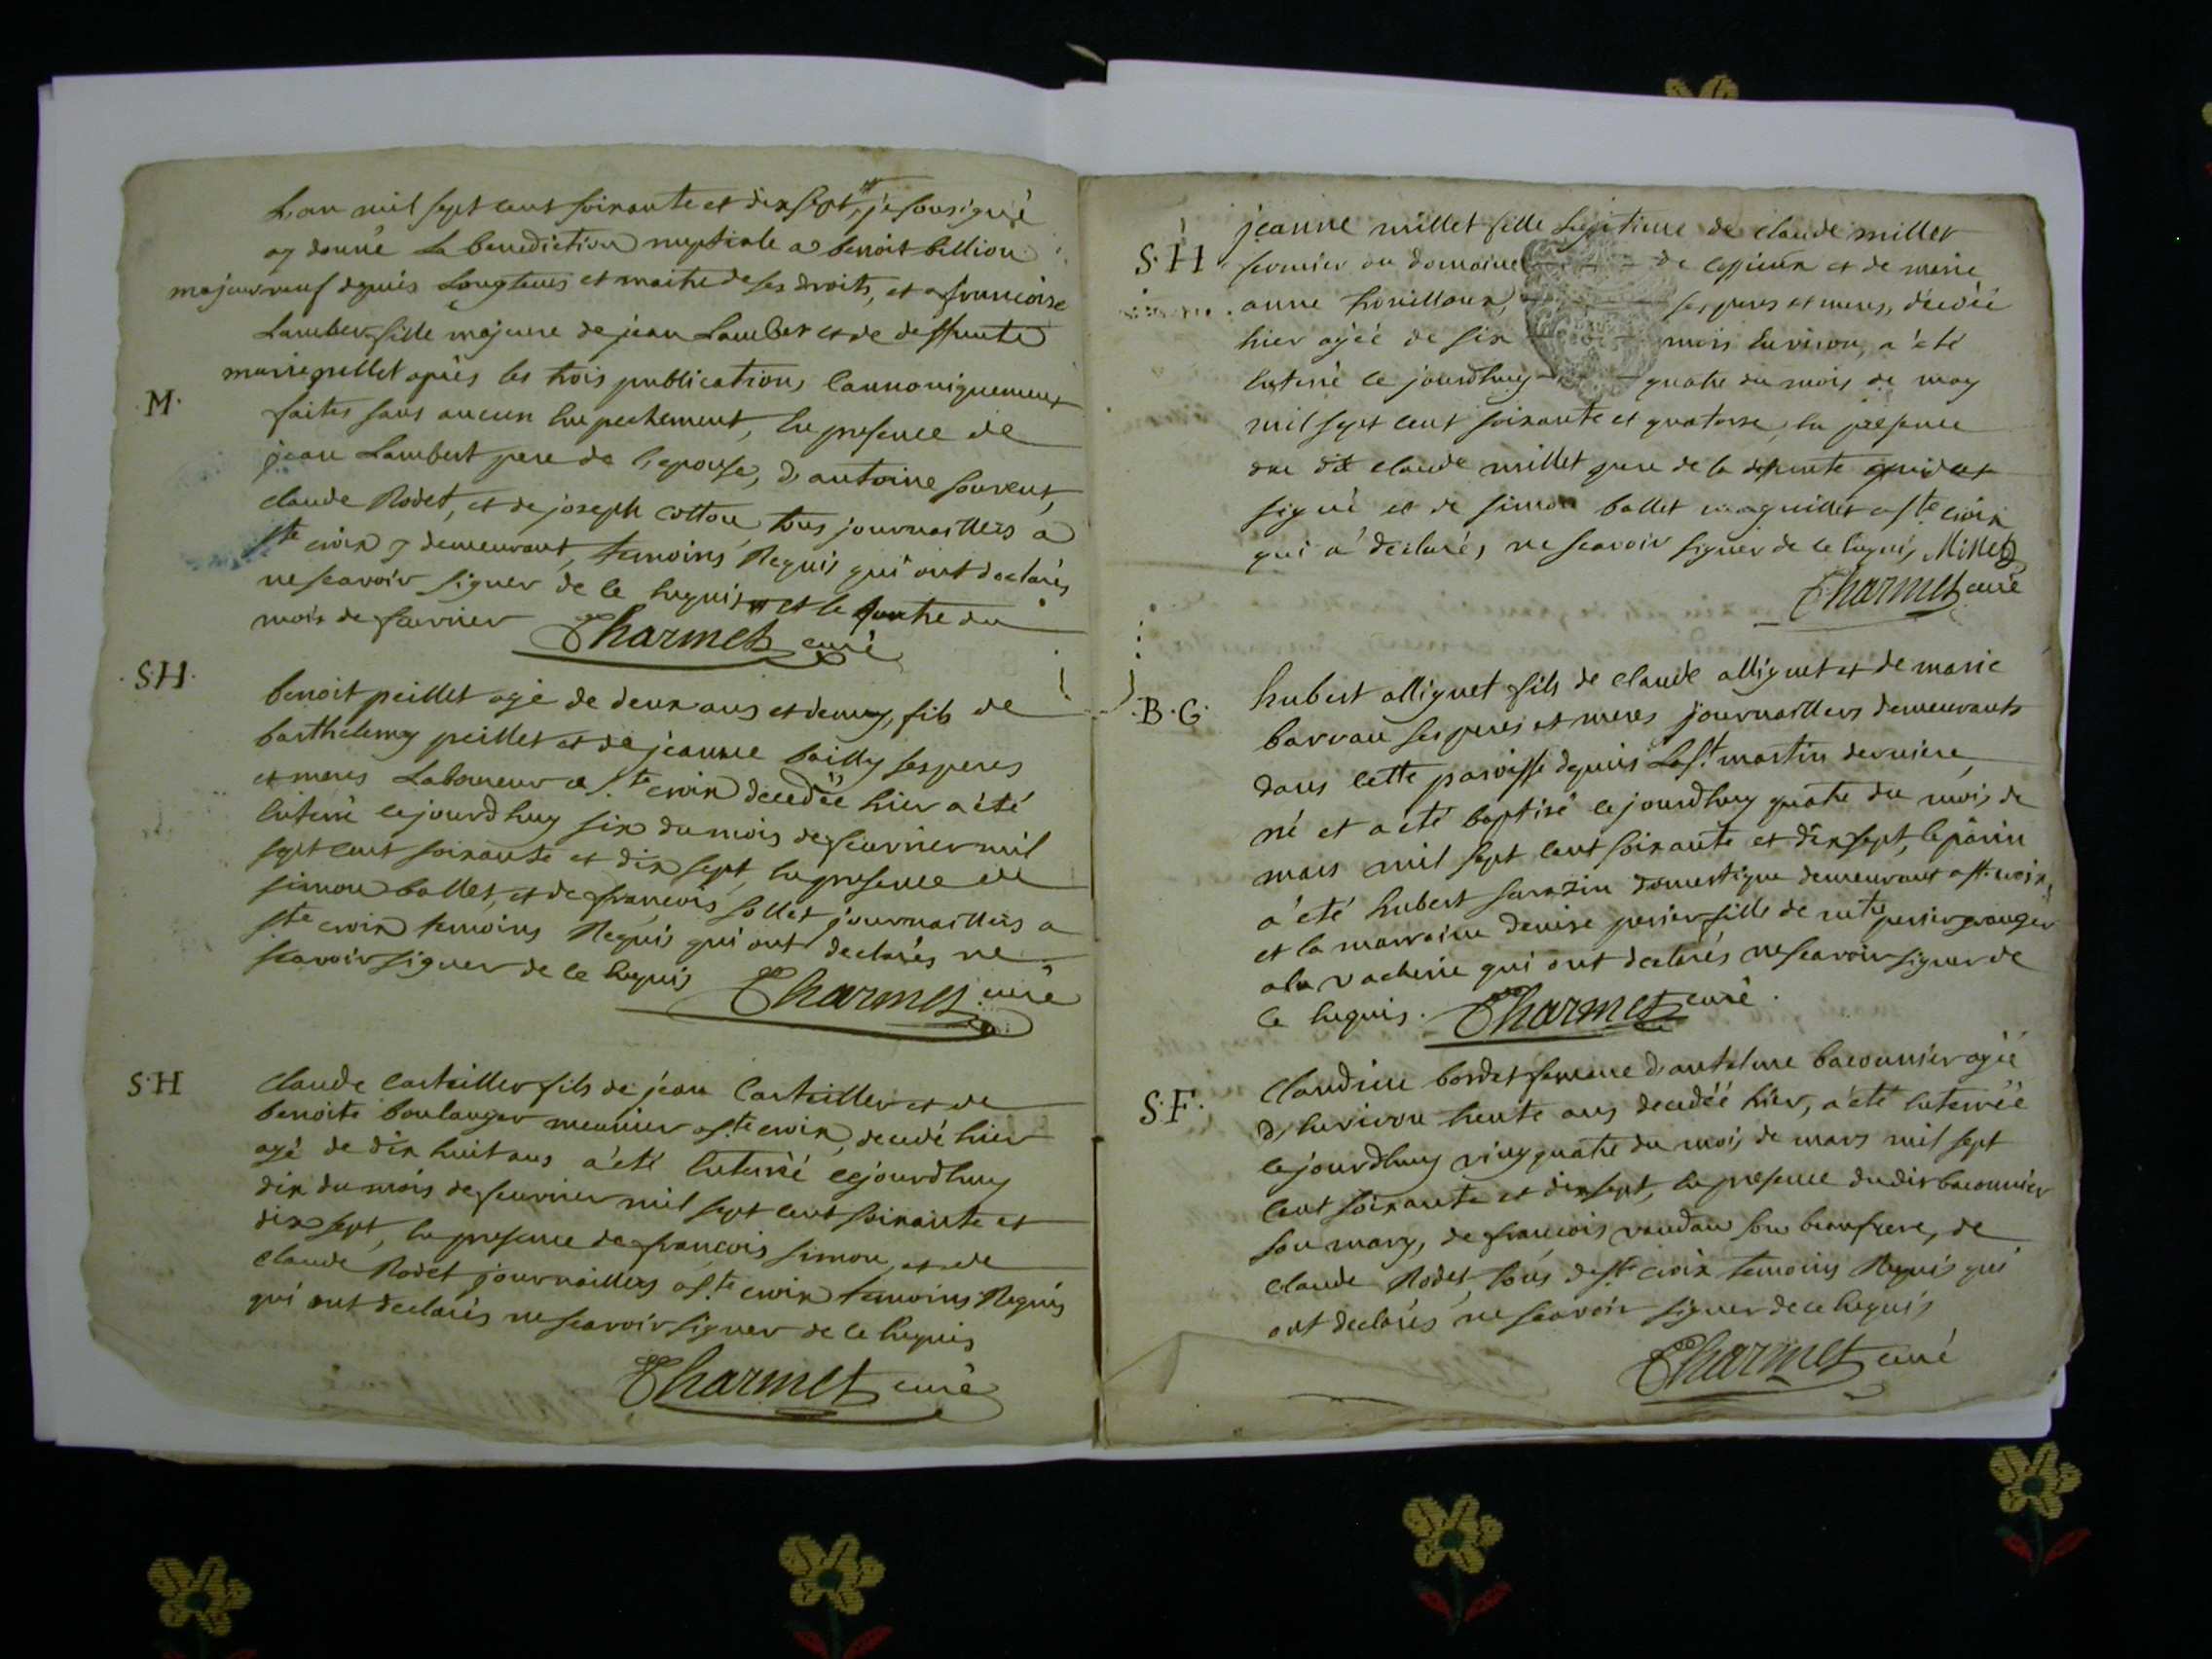 L'an mil sept cent soixante et dix sept, je sousigné
ay donné la benediction nuptiale a benoit billion
majeur veuf depuis Longtems et maitre de ses droits, et a francoise
Lambert fille majeure de jean Lambert et de deffunte
marie millet après les trois publications Cannoniquement
M.
faites sans aucun Empechement, En presence de
jean Lambert pere de l'epouse, d'antoine
claude Rodet, et de joseph cotton tous journailliers a
ste croix y demeurant, temoins Requis qui ont declarés
ne scavoir signer de ce Enquis et le quatre du
mois de fevrier Charmet curé
S.H.
benoit peillet agé de deux ans et demy, fils de
barthelemy peillet et de jeanne bailly ses peres
et meres Laboureur a Ste croix decedée hier a été
Enterré cejourdhuy six du mois de feuvrier mil
sept cent soixante et dix sept, En presence de
simon ballet, et de francois sollet journailliers a
ste croix temoins Requis qui ont declarés ne
scavoir signer de ce Enquis Charmet curé
S.H
Claude Carteiller fils de jean Carteiller et de
benoite boulanger meunier a Ste croix, decedé hier
agé de dix huit ans a'eté Enterré cejourdhuy
dix du mois de feuvrier mil sept cent soixante et
dix sept, En presence de francois simon, et de
Claude Rodet journailliers a Ste croix temoins Requis
qui ont declarés ne scavoir signer de ce Enquis
Charmet curé
jeanne millet fille Legitime de claude millet
S.H
fermier au domaine de et de marie
anne ses peres et meres, décédée
hier agéé de six mois Environ, a été
Enterré ce jourdhuy quatre du mois de may
mil sept cent soixante et quatorse, En presence
du dit claude millet pere de la defunte qui a
signé et de simon ballet marguillier a ste croix
qui a declarés ne scavoir signer de ce Enquis Millet
Charmet curé
B.G.
hubert alliguet fils de claude alliguet et de marie
barrau ses peres et meres journailliers demeurants
dans cette paroisse depuis La St martin derniere,
né et a eté baptisé cejourdhuy quatre du mois de
mars mil sept cent soixante et dix sept, le parin
a'eté hubert sarazin domestique demeurant a ste croix,
et la marraine denise perier fille de perier granger
a la vacherie qui ont declarés ne scavoir signer de
ce Enquis. Charmet curé.
S.F.
Claudine bordet femme d'antelme baconnier agéé
d'Environ trente ans decedéé hier, a'eté Enterréé
cejourdhuy vingt quatre du mois de mars mil sept
cent soixante et dix sept, En presence du dit baconnier
son mary, de francois vaudan son beaufrere, de
claude Rodet, tous de ste croix temoins Requis qui
ont declarés ne scavoir signer de ce Enquis
Charmet curé